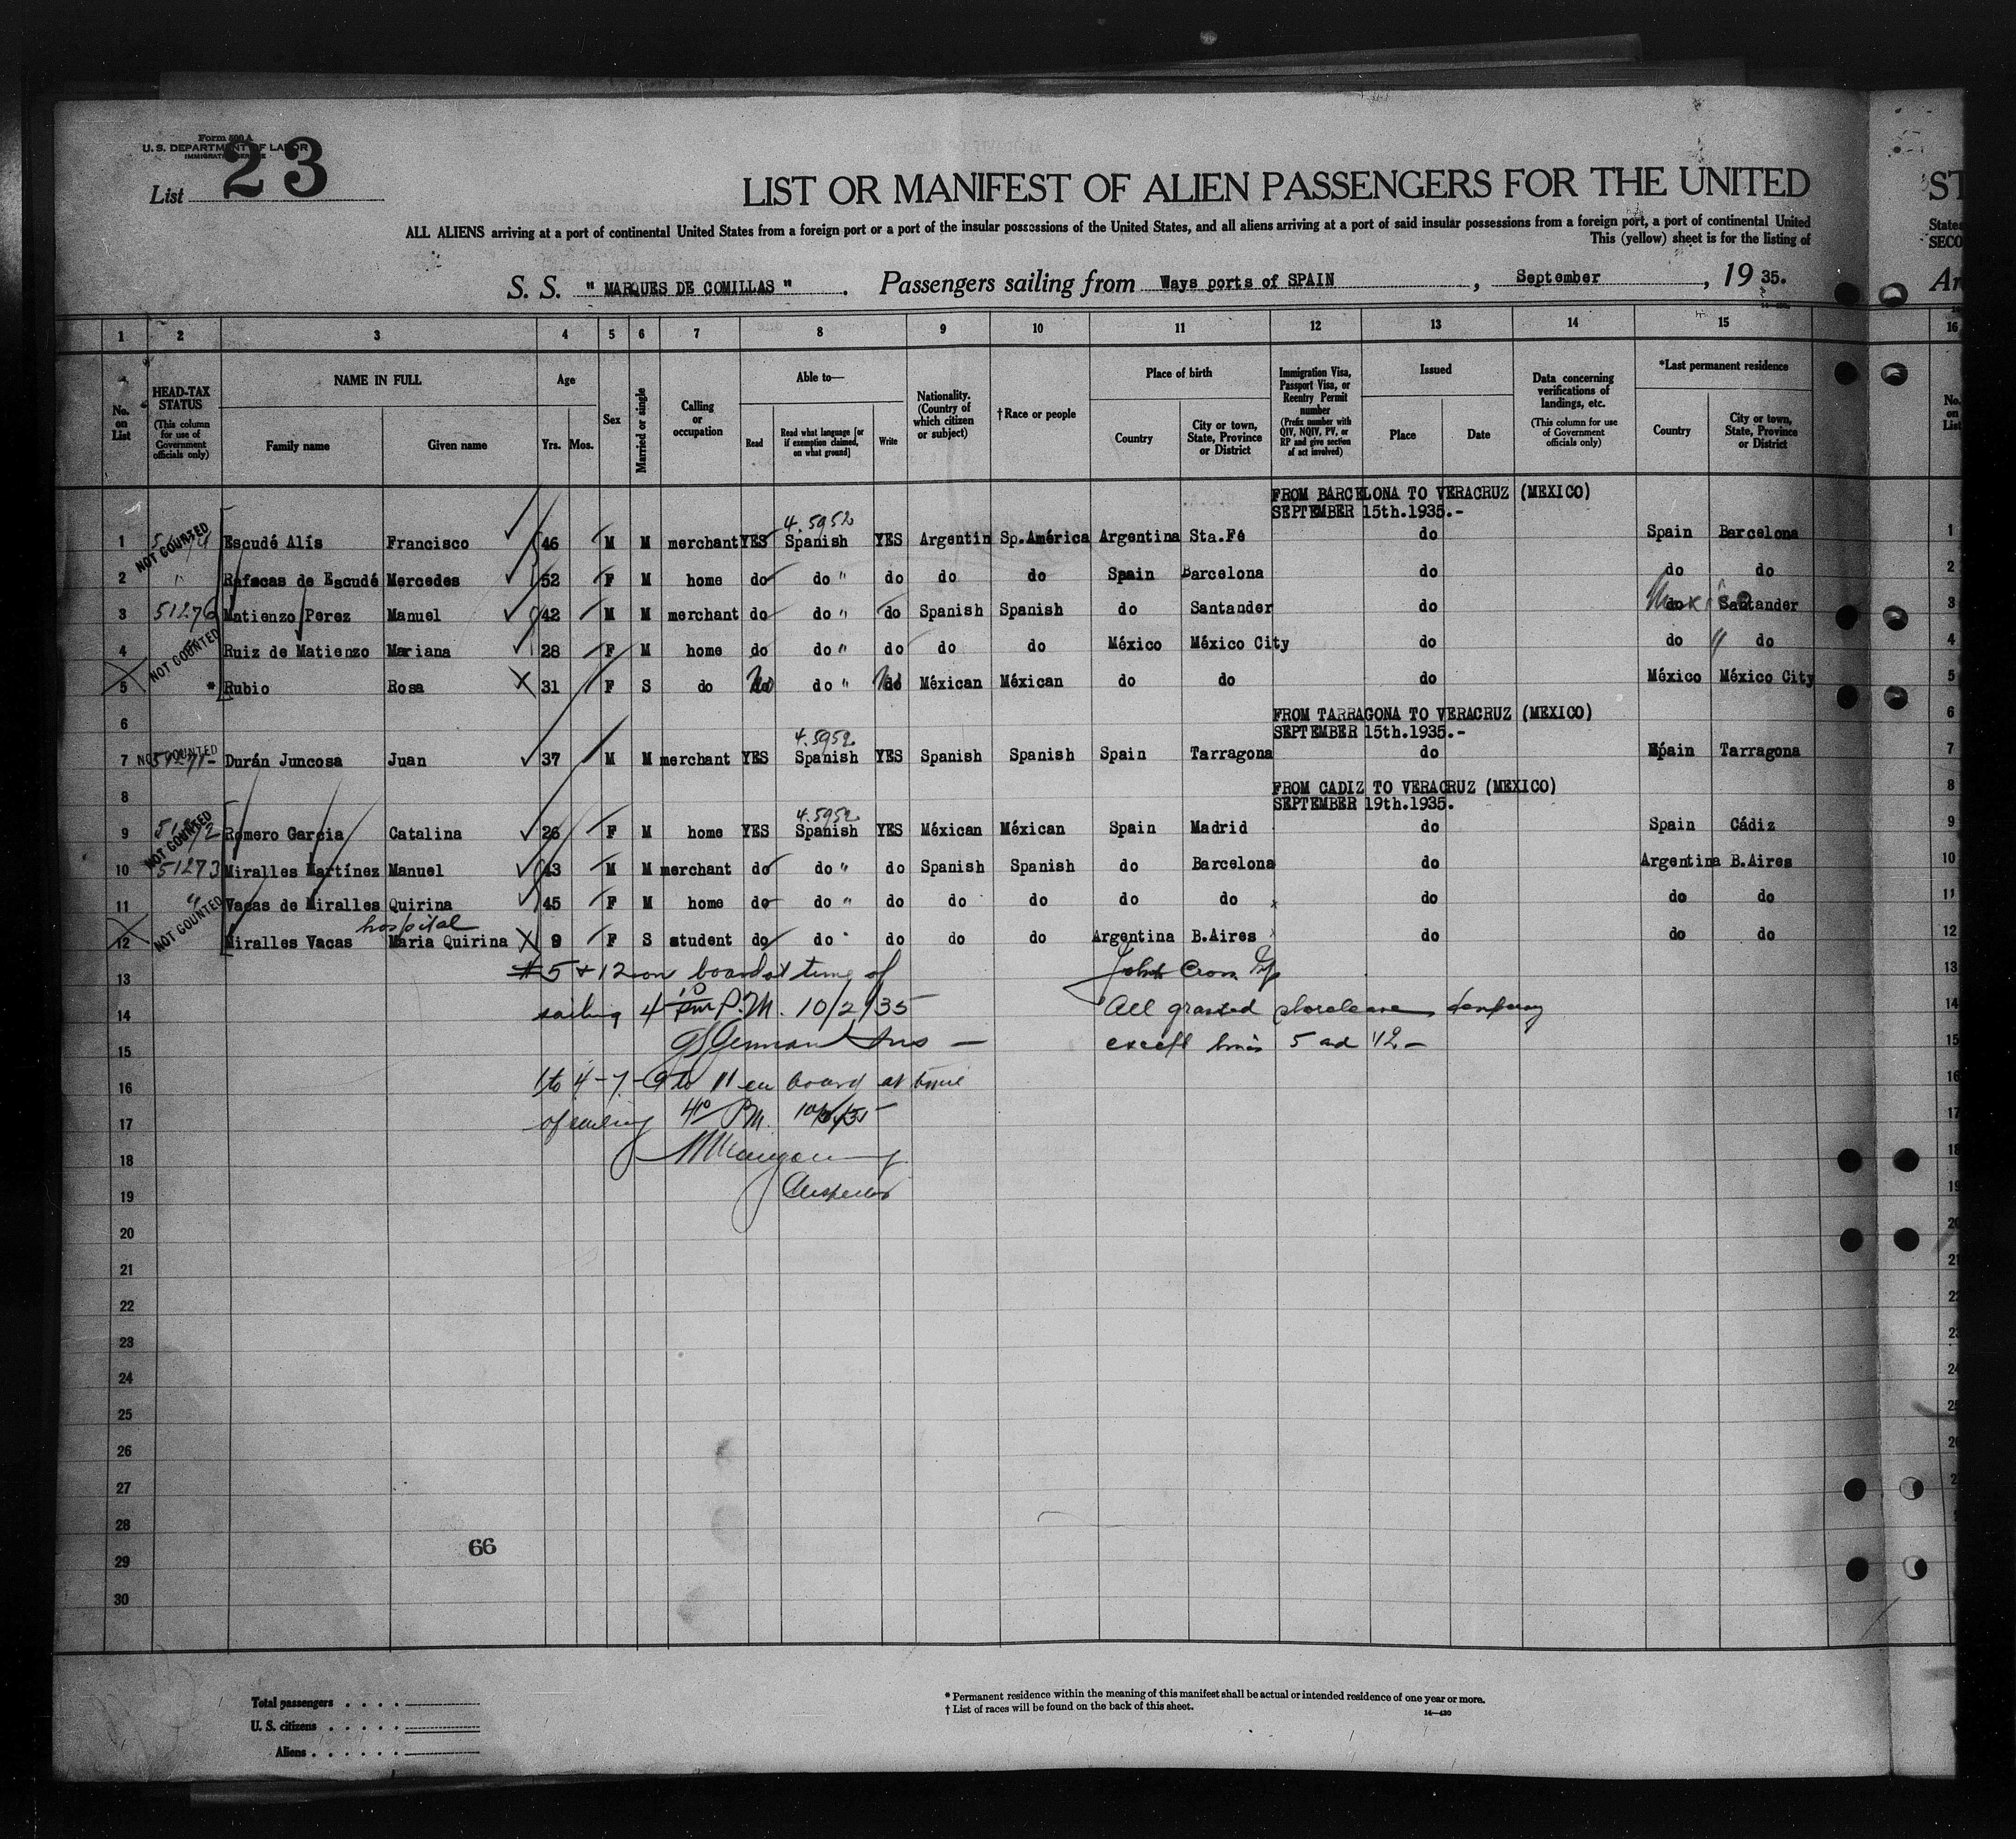 Form 500 A
U. S. DEPARTMENT OF LABOR
IMMIGRATION SERVICE
List 23
LIST OR MANIFEST OF ALIEN PASSENGERS FOR THE UNITED ST
ALL ALIENS arriving at a port of continental United States from a foreign port or a port of the insular possessions of the United States, and all aliens arriving at a port of said insular possessions from a foreign port, a port of continental United States
This (yellow) sheet is for the listing of SECO
S. S. " MARQUES DE COMILLAS " . Passengers sailing from Ways ports of SPAIN , September , 19 35. Ar
1 2 3 4 5 6 7 8 9 10 11 12 13 14 15 16
No. on List
HEAD-TAX STATUS (This column for use of Government officials only)
NAME IN FULL Family name Given name
Age Yrs. Mos.
Sex
Married or single
Calling or occupation
Able to— Read Read what language [or if exemption claimed, on what ground] Write
Nationality. (Country of which citizen or subject)
†Race or people
Place of birth Country City or town, State, Province or District
Immigration Visa, Passport Visa, or Reentry Permit number (Prefix number with QIV, NQIV, PV, or RP and give section of act involved)
Issued Place Date
Data concerning verifications of landings, etc. (This column for use of Government officials only)
*Last permanent residence Country City or town, State, Province or District
No. on List
FROM BARCELONA TO VERACRUZ (MEXICO)
SEPTEMBER 15th.1935.-
4.5952
1 NOT COUNTED Escudé Alís Francisco 46 M M merchant YES Spanish YES Argentin Sp.América Argentina Sta.Fé do Spain Barcelona 1
2 " Rafecas de Escudé Mercedes 52 F M home do do " do do do Spain Barcelona do do do 2
3 51276 Matienzo Perez Manuel 42 M M merchant do do " do Spanish Spanish do Santander do do Mexico Santander 3
4 NOT COUNTED Ruiz de Matienzo Mariana 28 F M home do do " do do do México México City do do " do 4
5 * Rubio Rosa 31 F S do No do " No Méxican Méxican do do do México México City 5
6 FROM TARRAGONA TO VERACRUZ (MEXICO) 6
SEPTEMBER 15th.1935.-
4.5952
7 NOT COUNTED Durán Juncosa Juan 37 M M merchant YES Spanish YES Spanish Spanish Spain Tarragona do Spain Tarragona 7
8 FROM CADIZ TO VERACRUZ (MEXICO) 8
SEPTEMBER 19th.1935.
4.5952
9 NOT COUNTED Romero Garcia Catalina 26 F M home YES Spanish YES Méxican Méxican Spain Madrid do Spain Cádiz 9
10 51273 Miralles Martínez Manuel 43 M M merchant do do " do Spanish Spanish do Barcelona do Argentina B.Aires 10
11 " Vacas de Miralles Quirina 45 F M home do do " do do do do do do do do 11
hospital
12 NOT COUNTED Miralles Vacas Maria Quirina 9 F S student do do " do do do Argentina B.Aires do do do 12
13 # 5 + 12 on board at time of John Cross 13
14 sailing 4 10 P.M. 10/2/35 All granted shoreleave temporary 14
15 Ins — except lines 5 and 12.— 15
16 1 to 4 - 7 - 9 to 11 on board at time 16
17 of sailing 4 10 PM. 17
18 18
19 Inspector 19
20
21 21
22 22
23
24 24
25
26
27
28
29
30
66
Total passengers
U. S. citizens
Aliens
* Permanent residence within the meaning of this manifest shall be actual or intended residence of one year or more.
† List of races will be found on the back of this sheet.
14—430